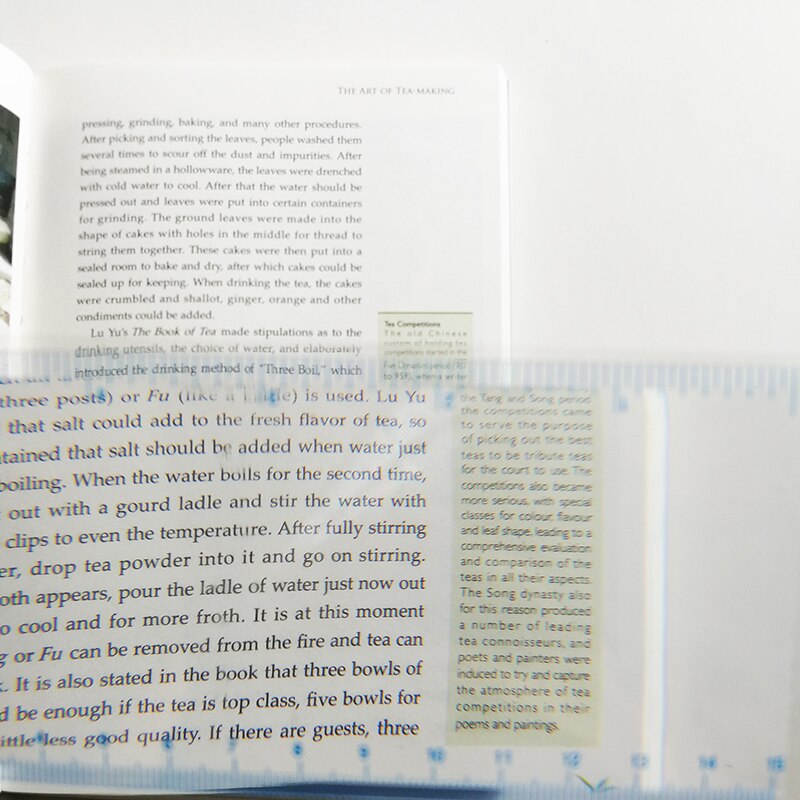 THE ART OF TEA-MAKING
pressing, grinding, baking, and many other procedures.
After picking and sorting the leaves, people washed them
several times to scour off the dust and impurities. After
being steamed in a hollowware, the leaves were drenched
with cold water to cool. After that the water should be
pressed out and leaves were put into certain containers
for grinding. The ground leaves were made into the
shape of cakes with holes in the middle for thread to
string them together. These cakes were then put into a
sealed room to bake and dry, after which cakes could be
sealed up for keeping. When drinking the tea, the cakes
were crumbled and shallot, ginger, orange and other
condiments could be added.
Lu Yu's The Book of Tea made stipulations as to the
drinking utensils, the choice of water, and elaborately
introduced the drinking method of "Three Boil," which
three posts) or Fu (like a ) is used. Lu Yu
that salt could add to the fresh flavor of tea, so
tained that salt should be added when water just
boiling. When the water boils for the second time,
out with a gourd ladle and stir the water with
clips to even the temperature. After fully stirring
er, drop tea powder into it and go on stirring.
oth appears, pour the ladle of water just now out
o cool and for more froth. It is at this moment
g or Fu can be removed from the fire and tea can
. It is also stated in the book that three bowls of
d be enough if the tea is top class, five bowls for
ittle less good quality. If there are guests, three
Tea Competitions
The old Chinese
custom of holding tea
competitions started in the
Five Dynasties period (907
to 959), when a writer
the Tang and Song period
the competitions came
to serve the purpose
of picking out the best
teas to be tribute teas
for the court to use. The
competitions also became
more serious, with special
classes for colour, flavour
and leaf shape, leading to a
comprehensive evaluation
and comparison of the
teas in all their aspects.
The Song dynasty also
for this reason produced
a number of leading
tea connoisseurs, and
poets and painters were
induced to try and capture
the atmosphere of tea
competitions in their
poems and paintings.
8 9 10 11 12 13 14 15